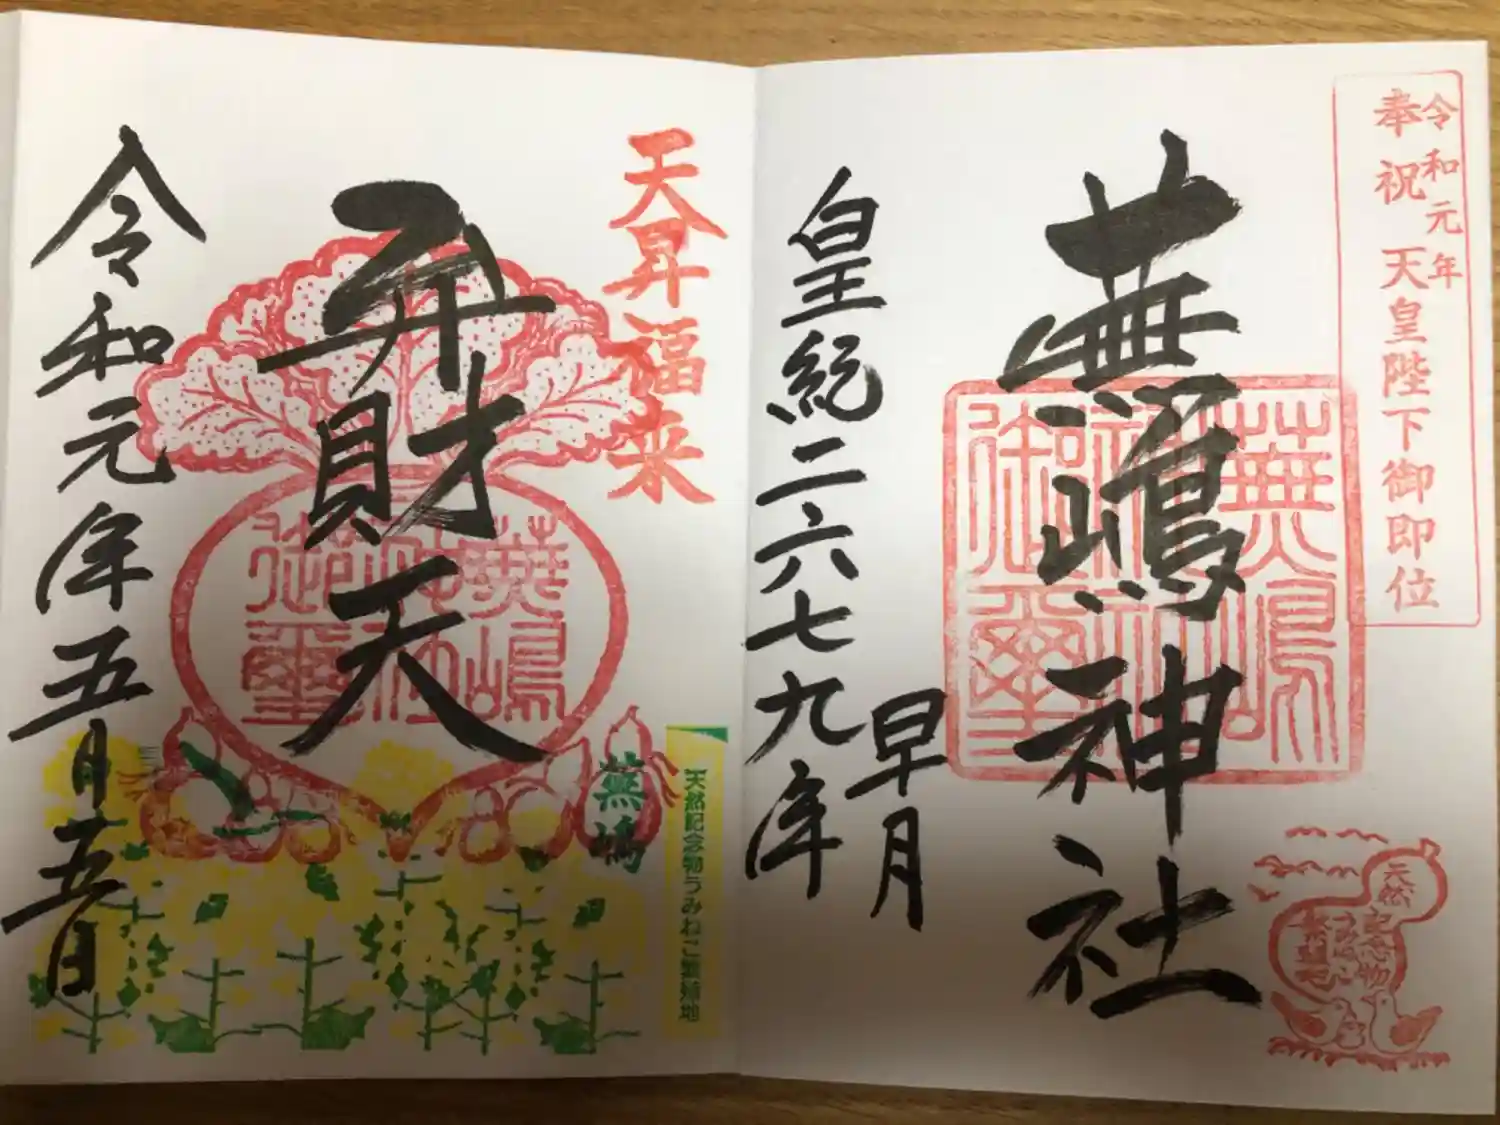 令和元年
奉祝 天皇陛下御即位
蕪嶋神社
蕪嶋神社御璽
早月
皇紀二六七九年
天然記念物
天昇福来
弁財天
蕪嶋神社御璽
蕪嶋
天然記念物うみねこ繁殖地
令和元年五月五日